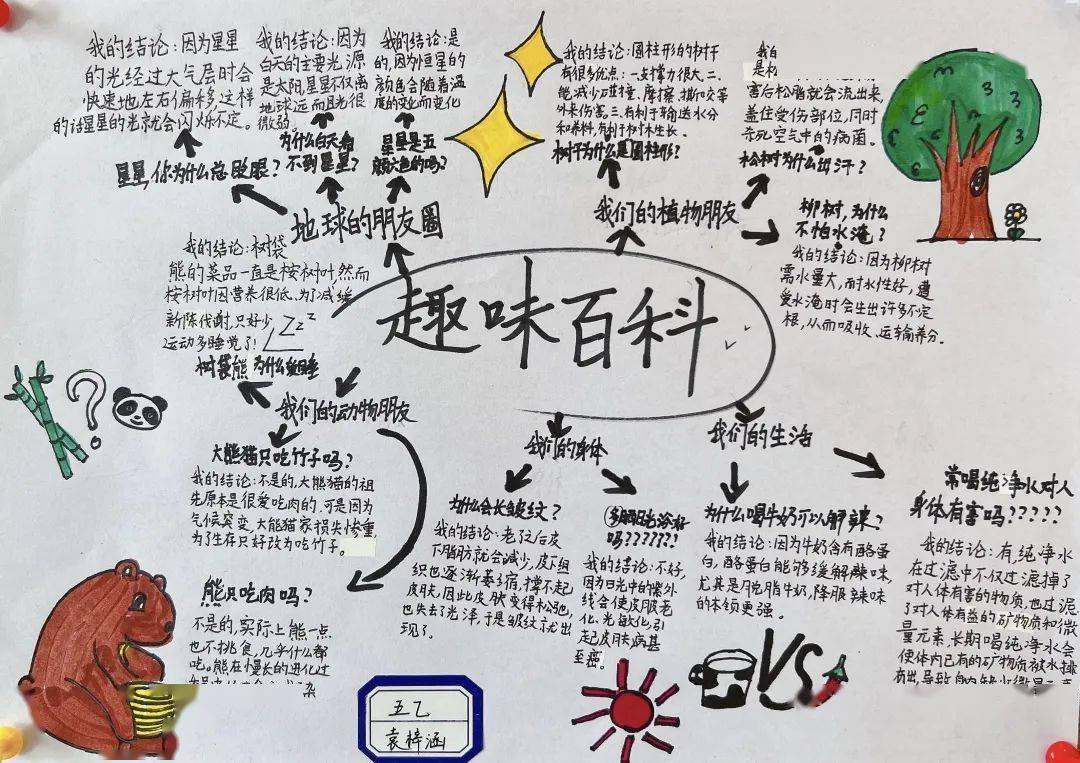 趣味百科
地球的朋友圈
我的结论：因为星星
的光经过大气层时会
快速地左右偏移,这样
的话星星的光就会闪烁不定。
星星,你为什么总眨眼？
我的结论：因为
白天的主要光源
是太阳,星星不仅离
地球远而且光很
微弱。
为什么白天看
不到星星？
我的结论：是
的,因为恒星的
颜色会随着温
度的变化而变化
星星是五
颜六色的吗？
我们的植物朋友
我的结论：圆柱形的树干
有很多优点：一.支撑力很大,二.
能减少碰撞、摩擦、撕咬等
外来伤害,三.有利于输送水分
和养料,有利于树木生长。
树干为什么是圆柱形？
害后松脂就会流出来,
盖住受伤部位,同时
杀死空气中的病菌。
松树为什么出汗？
柳树,为什么
不怕水淹？
我的结论：因为柳树
需水量大,耐水性好,遭
受水淹时会生出许多不定
根,从而吸收、运输养分。
我们的动物朋友
我的结论：树袋
熊的菜品一直是桉树叶,然而
桉树叶因营养很低.为了减缓
新陈代谢,只好少
运动多睡觉了!
ZZZZ
树袋熊为什么爱睡
大熊猫只吃竹子吗？
我的结论：不是的,大熊猫的祖
先原本是很爱吃肉的,可是因为
气候突变,大熊猫家损失惨重,
为了生存只好改为吃竹子。
熊只吃肉吗？
不是的,实际上熊一点
也不挑食,几乎什么都
吃。熊在慢长的进化过
杂
我们的身体
为什么会长皱纹？
我的结论：老了后皮
下脂肪就会减少,皮下组
织也逐渐萎缩,撑不起
皮肤,因此皮肤变得松弛,
也失去了光泽,于是皱纹就出
现了。
多晒日光浴好
吗???????
我的结论：不好,
因为日光中的紫外
线会使皮肤老
化、光敏化,引
起皮肤病甚
至癌。
我们的生活
为什么喝牛奶可以解辣？
我的结论：因为牛奶含有酪蛋
白,酪蛋白能够缓解辣味,
尤其是脱脂牛奶,降服辣味
的本领更强。
VS
常喝纯净水对人
身体有害吗?????
我的结论：有,纯净水
在过滤中不仅过滤掉了
对人体有害的物质,也过滤
了对人体有益的矿物质和微
量元素,长期喝纯净水会
使体内已有的矿物质被水排
五乙
袁梓涵